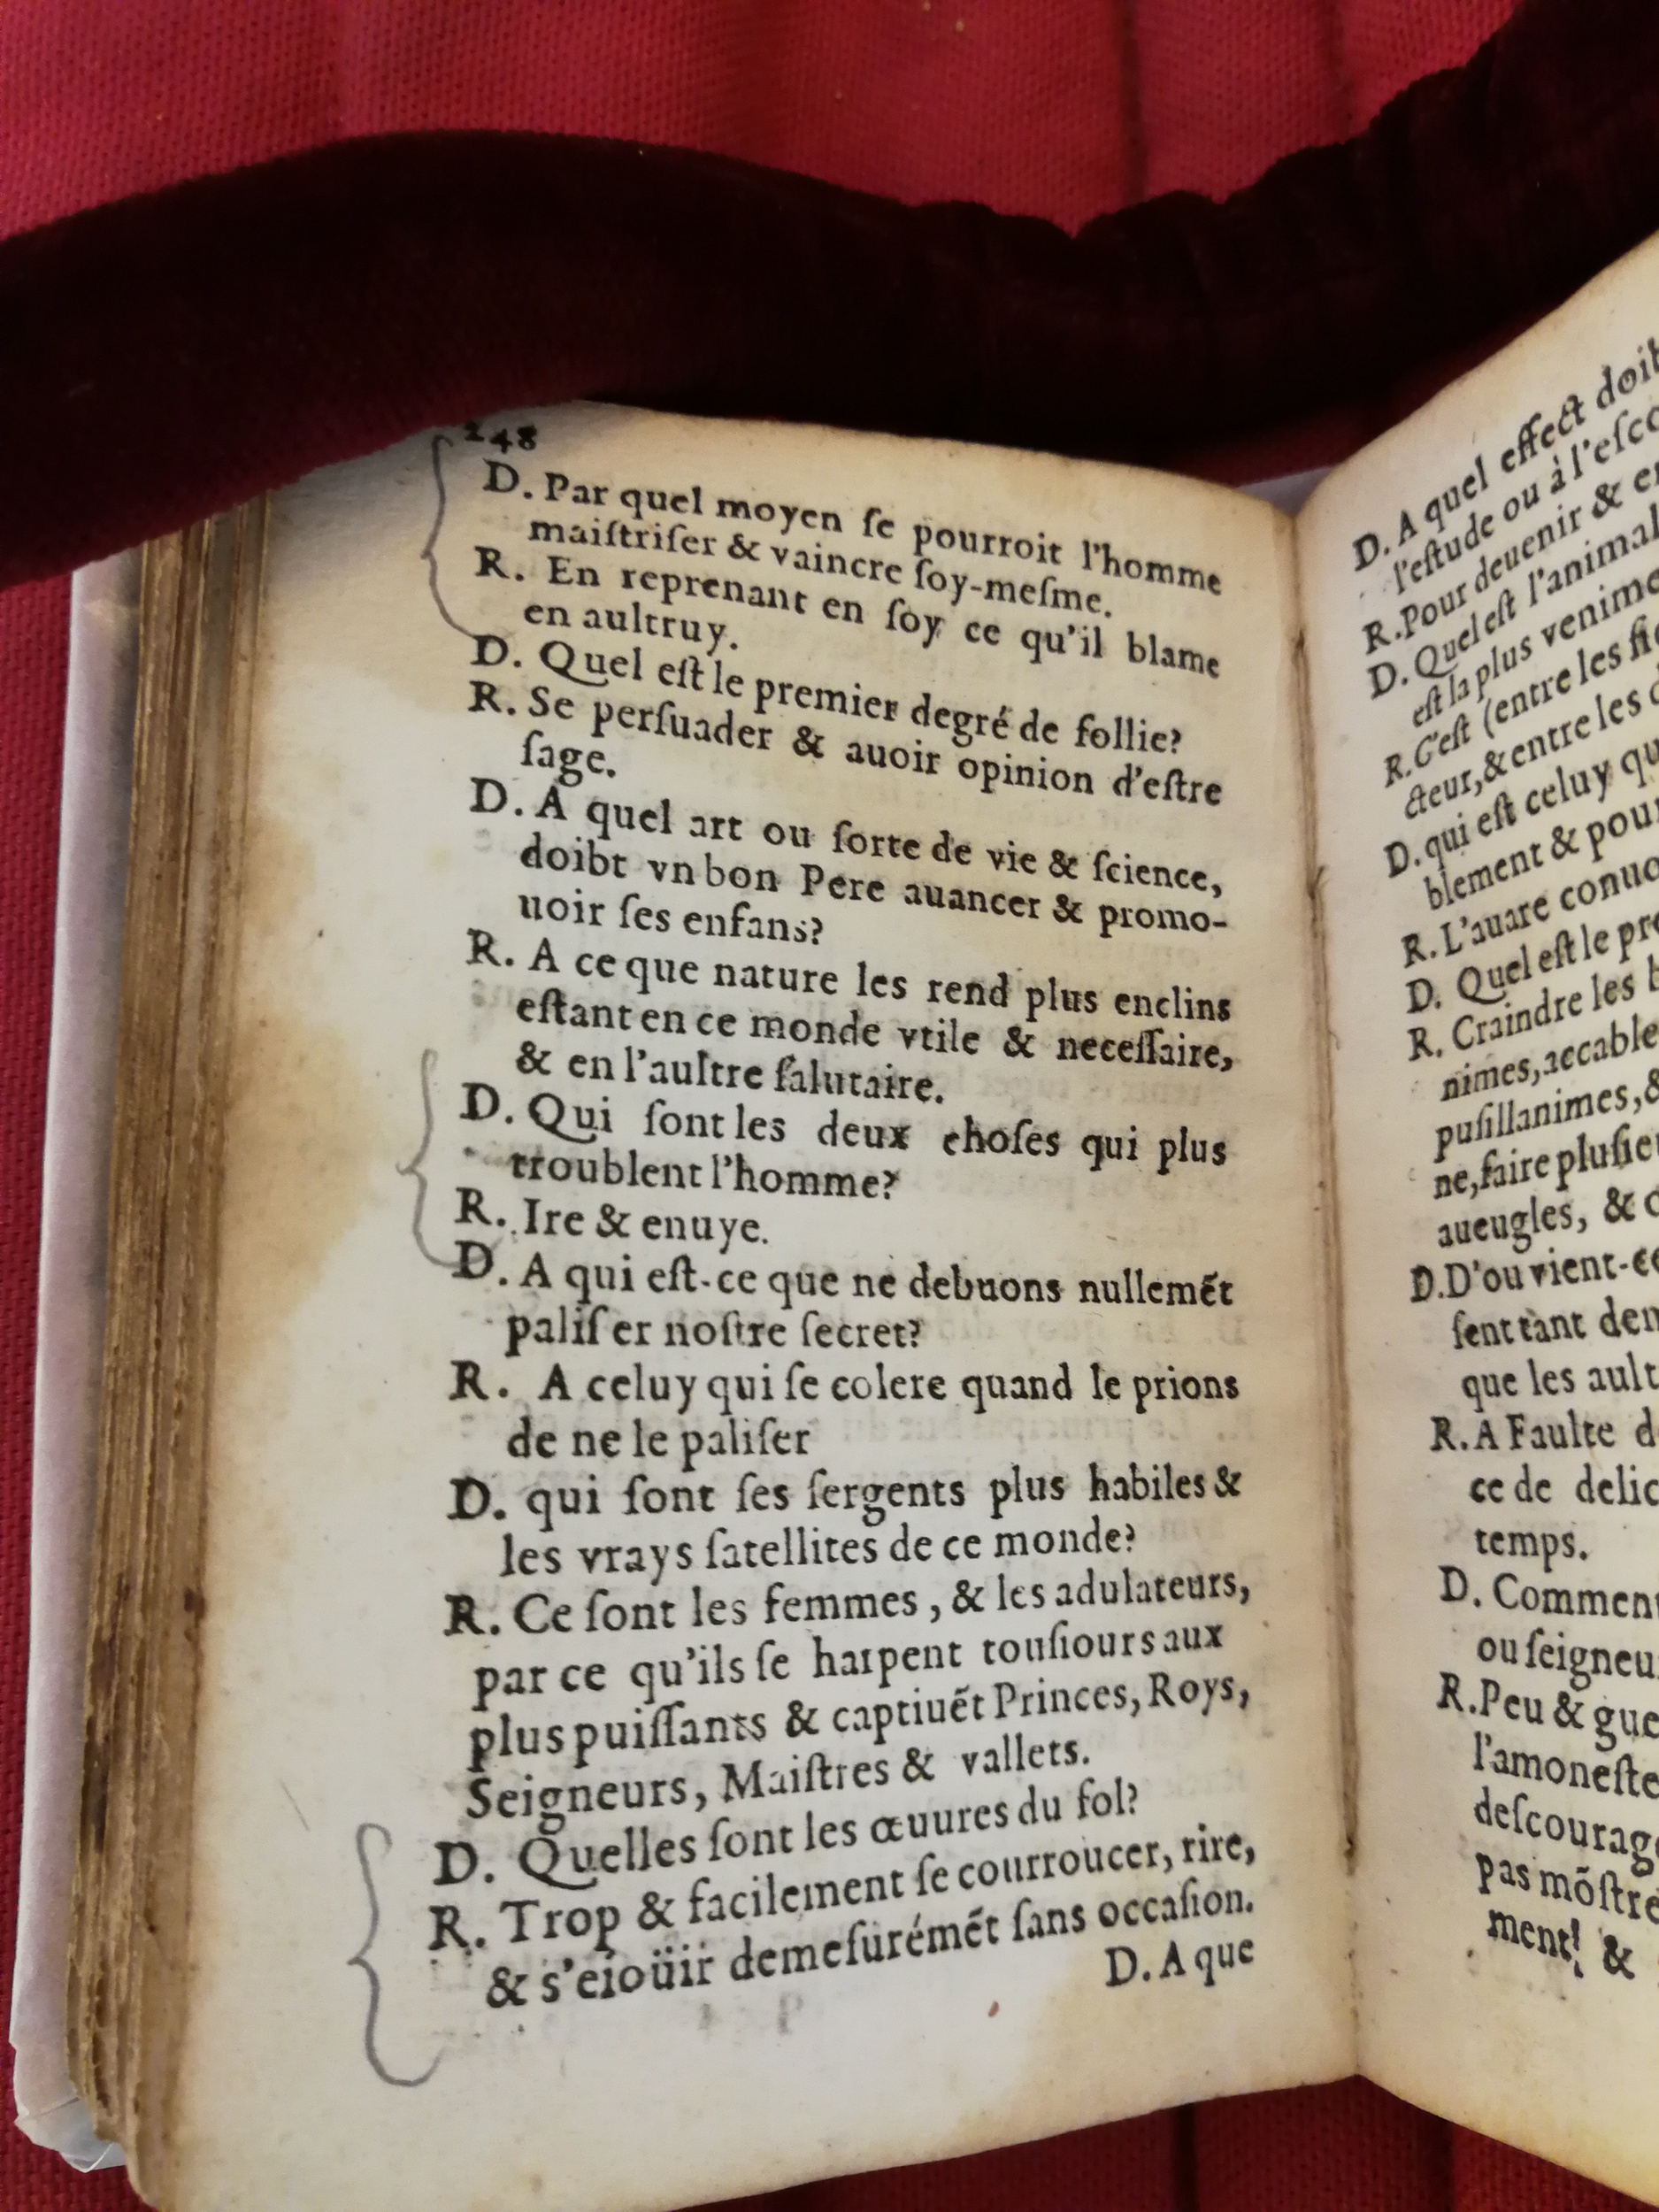 248
D. Par quel moyen ſe pourroit l'homme
maiſtriſer & vaincre ſoy-meſme.
R. En reprenant en ſoy ce qu'il blame
en aultruy.
D. Quel eſt le premier degré de follie?
R. Se perſuader & auoir opinion d'eſtre
ſage.
D. A quel art ou ſorte de vie & ſcience,
doibt vn bon Pere auancer & promo-
uoir ſes enfans?
R. A ce que nature les rend plus enclins
eſtant en ce monde vtile & neceſſaire,
& en l'aultre ſalutaire.
D. Qui ſont les deux choſes qui plus
troublent l'homme?
R. Ire & enuye.
D. A qui eſt-ce que ne debuons nullemẽt
paliſer noſtre ſecret?
R. A celuy qui ſe colere quand le prions
de ne le paliſer
D. qui ſont ſes ſergents plus habiles &
les vrays ſatellites de ce monde?
R. Ce ſont les femmes, & les adulateurs,
par ce qu'ils ſe harpent touſiours aux
plus puiſſants & captiuẽt Princes, Roys,
Seigneurs, Maiſtres & vallets.
D. Quelles ſont les œuures du fol?
R. Trop & facilement ſe courroucer, rire,
& s'eioüir demeſurémẽt ſans occaſion.
D. A que
D. A quel effect doib
l'eſtude ou à l'eſco
R. Pour deuenir & e
D. Quel eſt l'animal
eſt la plus venime
R. C'eſt (entre les
cteur, & entre les
D. qui eſt celuy qu
blement & pour
R. L'auare conuo
D. Quel eſt le pr
R. Craindre les
nimes, accable
puſillanimes, &
ne, faire pluſie
aueugles, &
D. D'ou vient-ce
ſent tant dem
que les ault
R. A Faulte d
ce de delic
temps.
D. Commen
ou ſeigneu
R. Peu & gue
l'amoneſte
deſcourag
pas mõſtre
ment! &